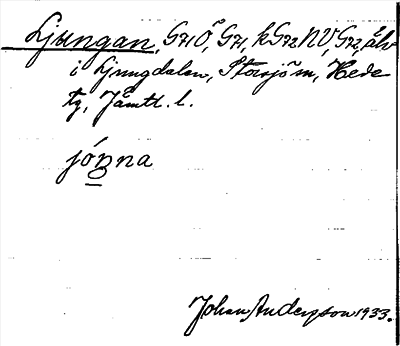 Ljungan, G71Ö, G71, kG72NV, G72, älv
i Ljungdalen, Storsjö sn, Hede
tg, Jämtl. l.
jóṉna
Johan Anderson 1933.